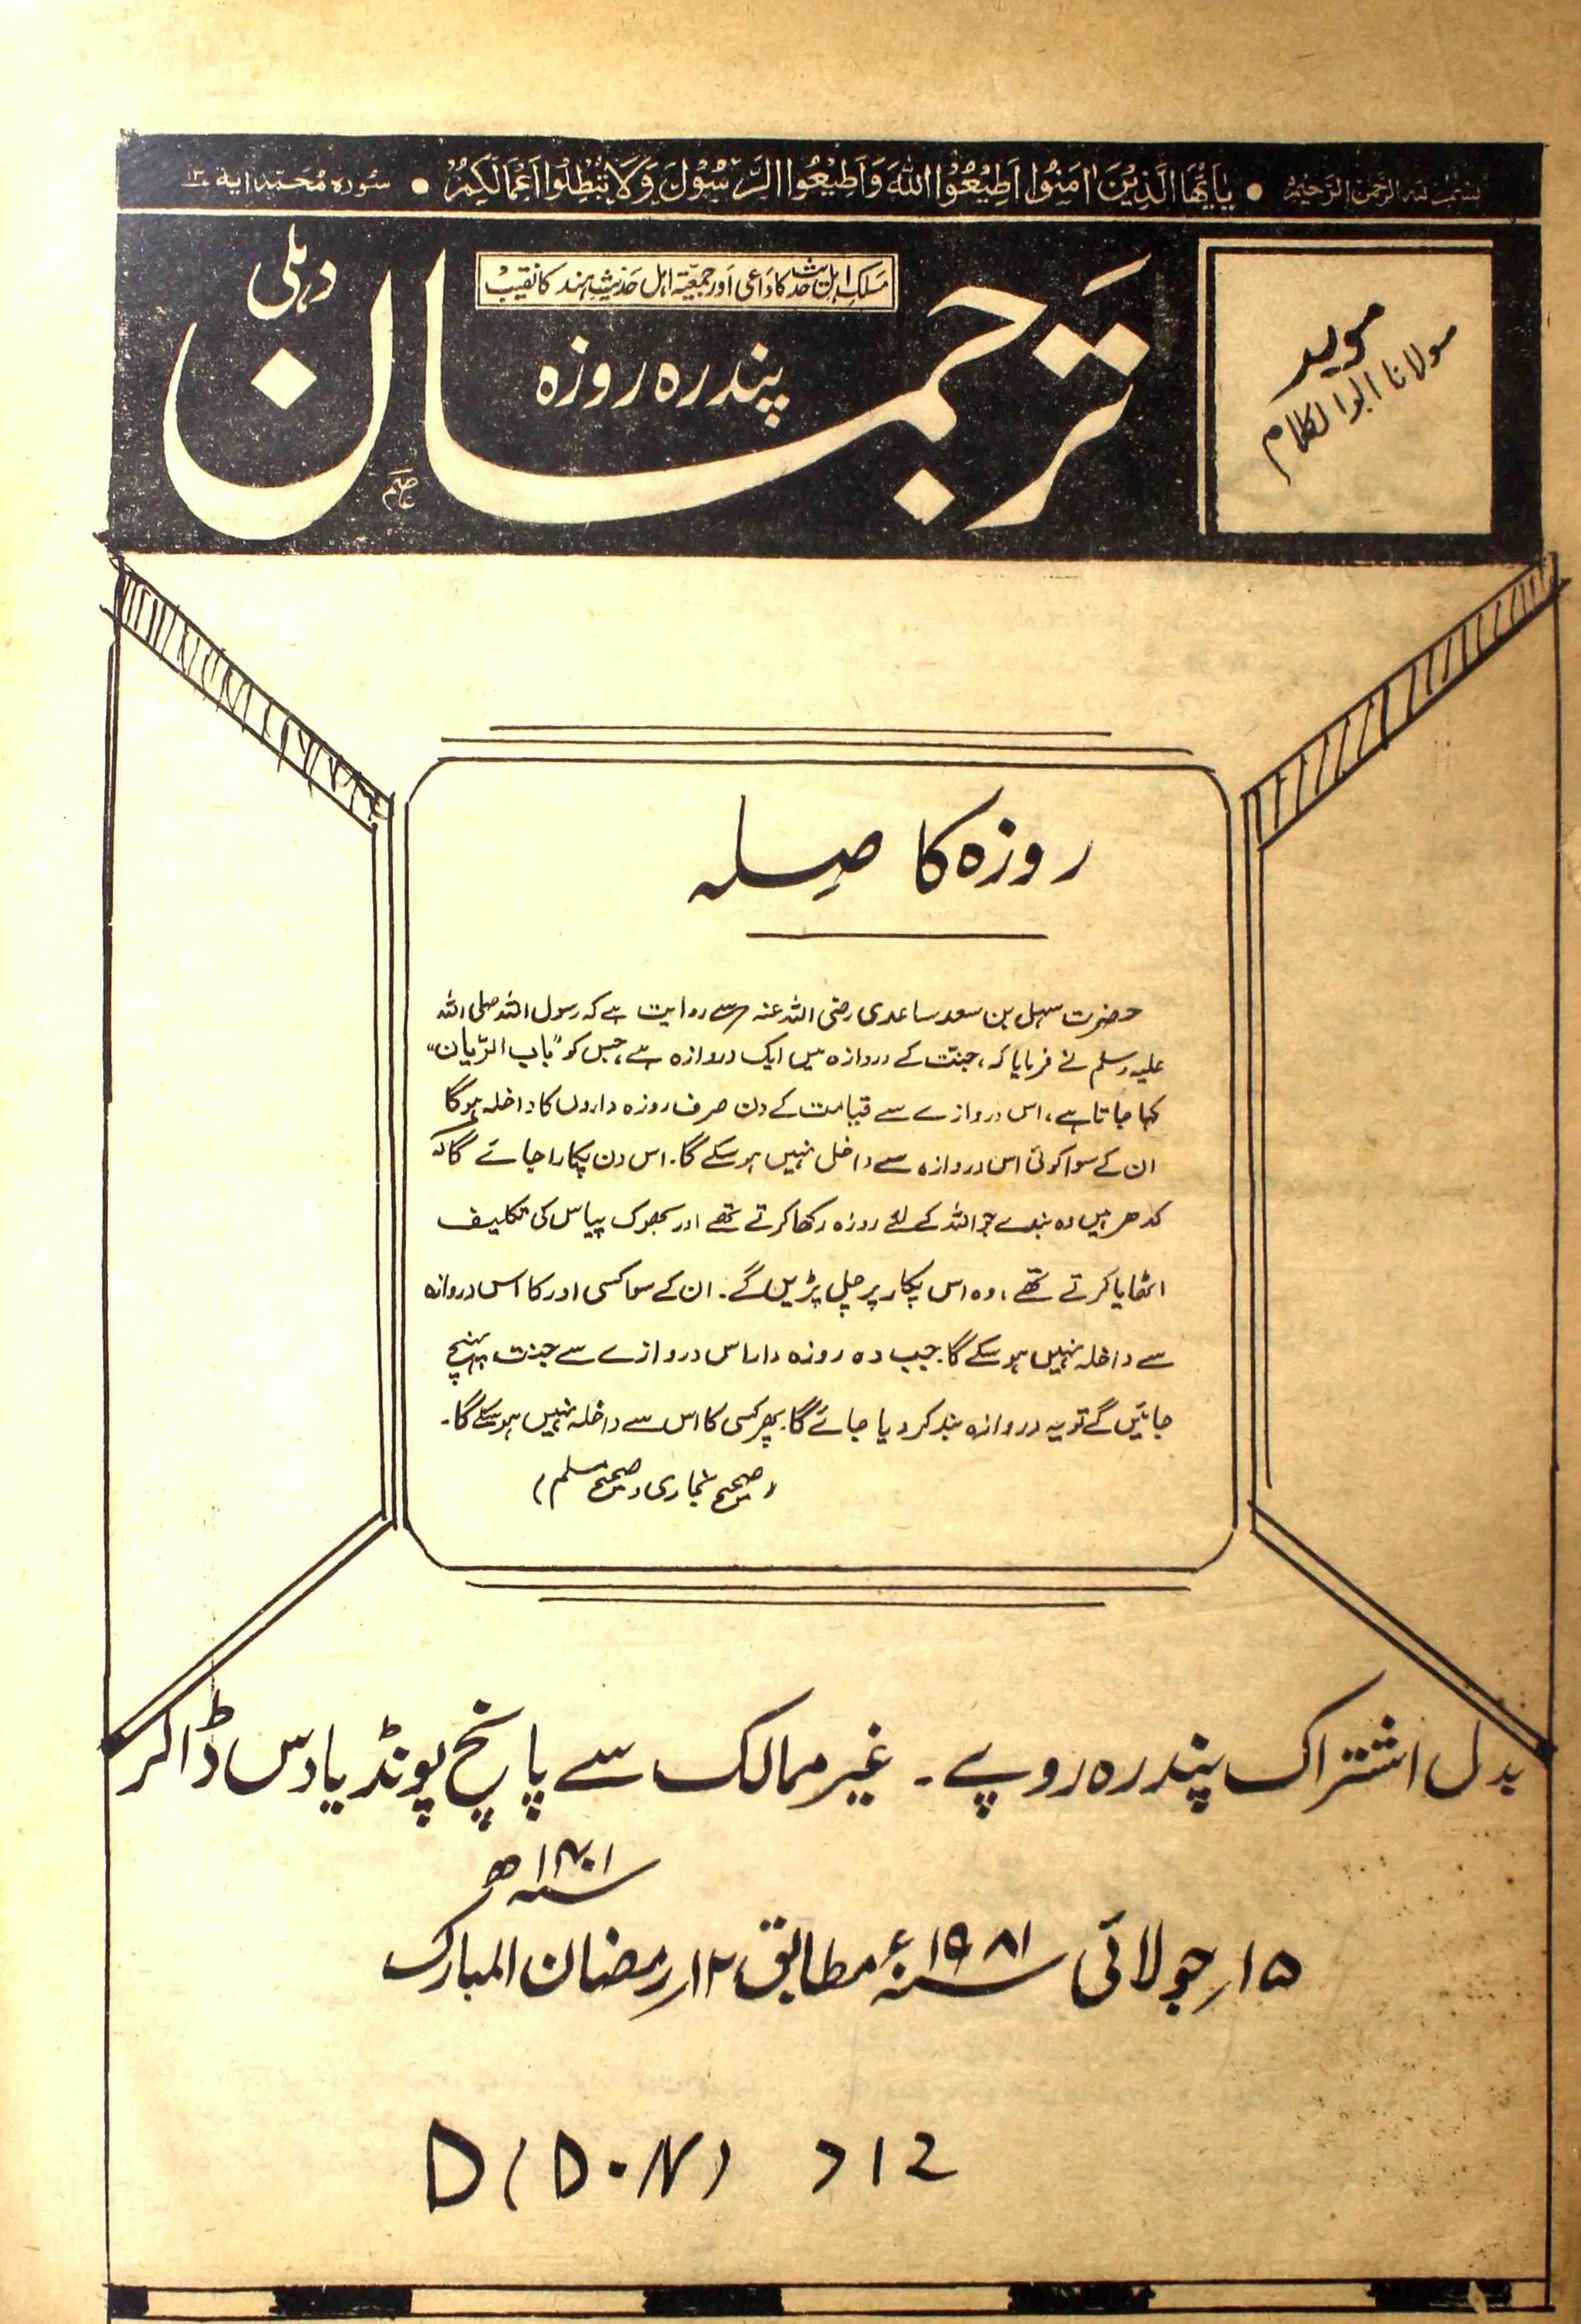 بسم اللہ الرحمن الرحیم • یٰاَیُّھَا الَّذِیْنَ اٰمَنُوا اَطِیْعُوْا اللّٰهَ وَاَطِیْعُوا الرَّسُوْلَ وَلَا تُبْطِلُوا اَعْمَالَکُمْ • سُوره مُحَمَّد اٰیة
مسلک اہل حدیث کا داعی اور جمعیۃ اہل حدیث ہند کا نقیب
ترجمان دہلی
پندرہ روزہ
مولانا ابوالکلام
روزہ کا صِلہ
حضرت سہل بن سعد ساعدی رضی اللہ عنہ سے روایت ہے کہ رسول اللہ صلی اللہ
علیہ وسلم نے فرمایا کہ، جنّت کے دروازہ میں ایک دروازہ ہے، جس کو "باب الرّیان"
کہا جاتا ہے، اس دروازے سے قیامت کے دن صرف روزہ داروں کا داخلہ ہوگا
ان کے سوا کوئی اس دروازہ سے داخل نہیں ہو سکے گا۔ اس دن پکارا جائے گا کہ
کدھر ہیں وہ بندے جو اللہ کے لئے روزہ رکھا کرتے تھے اور بھوک پیاس کی تکلیف
اٹھایا کرتے تھے، وہ اس پکار پر چل پڑیں گے۔ ان کے سوا کسی اور کا اس دروازہ
سے داخلہ نہیں ہو سکے گا۔ جب وہ روزہ دار اس دروازے سے جنت پہنچ
جائیں گے تو یہ دروازہ بند کر دیا جائے گا۔ پھر کسی کا اس سے داخلہ نہیں ہو سکے گا۔
(صحیح بخاری و صحیح مسلم)
بدل اشتراک پندرہ روپے۔ غیر ممالک سے پانچ پونڈ یا دس ڈالر
۱۵؍جولائی ۱۹۸۱ء مطابق ۱۲؍رمضان المبارک ۱۴۰۱ھ
D(D.N) 712